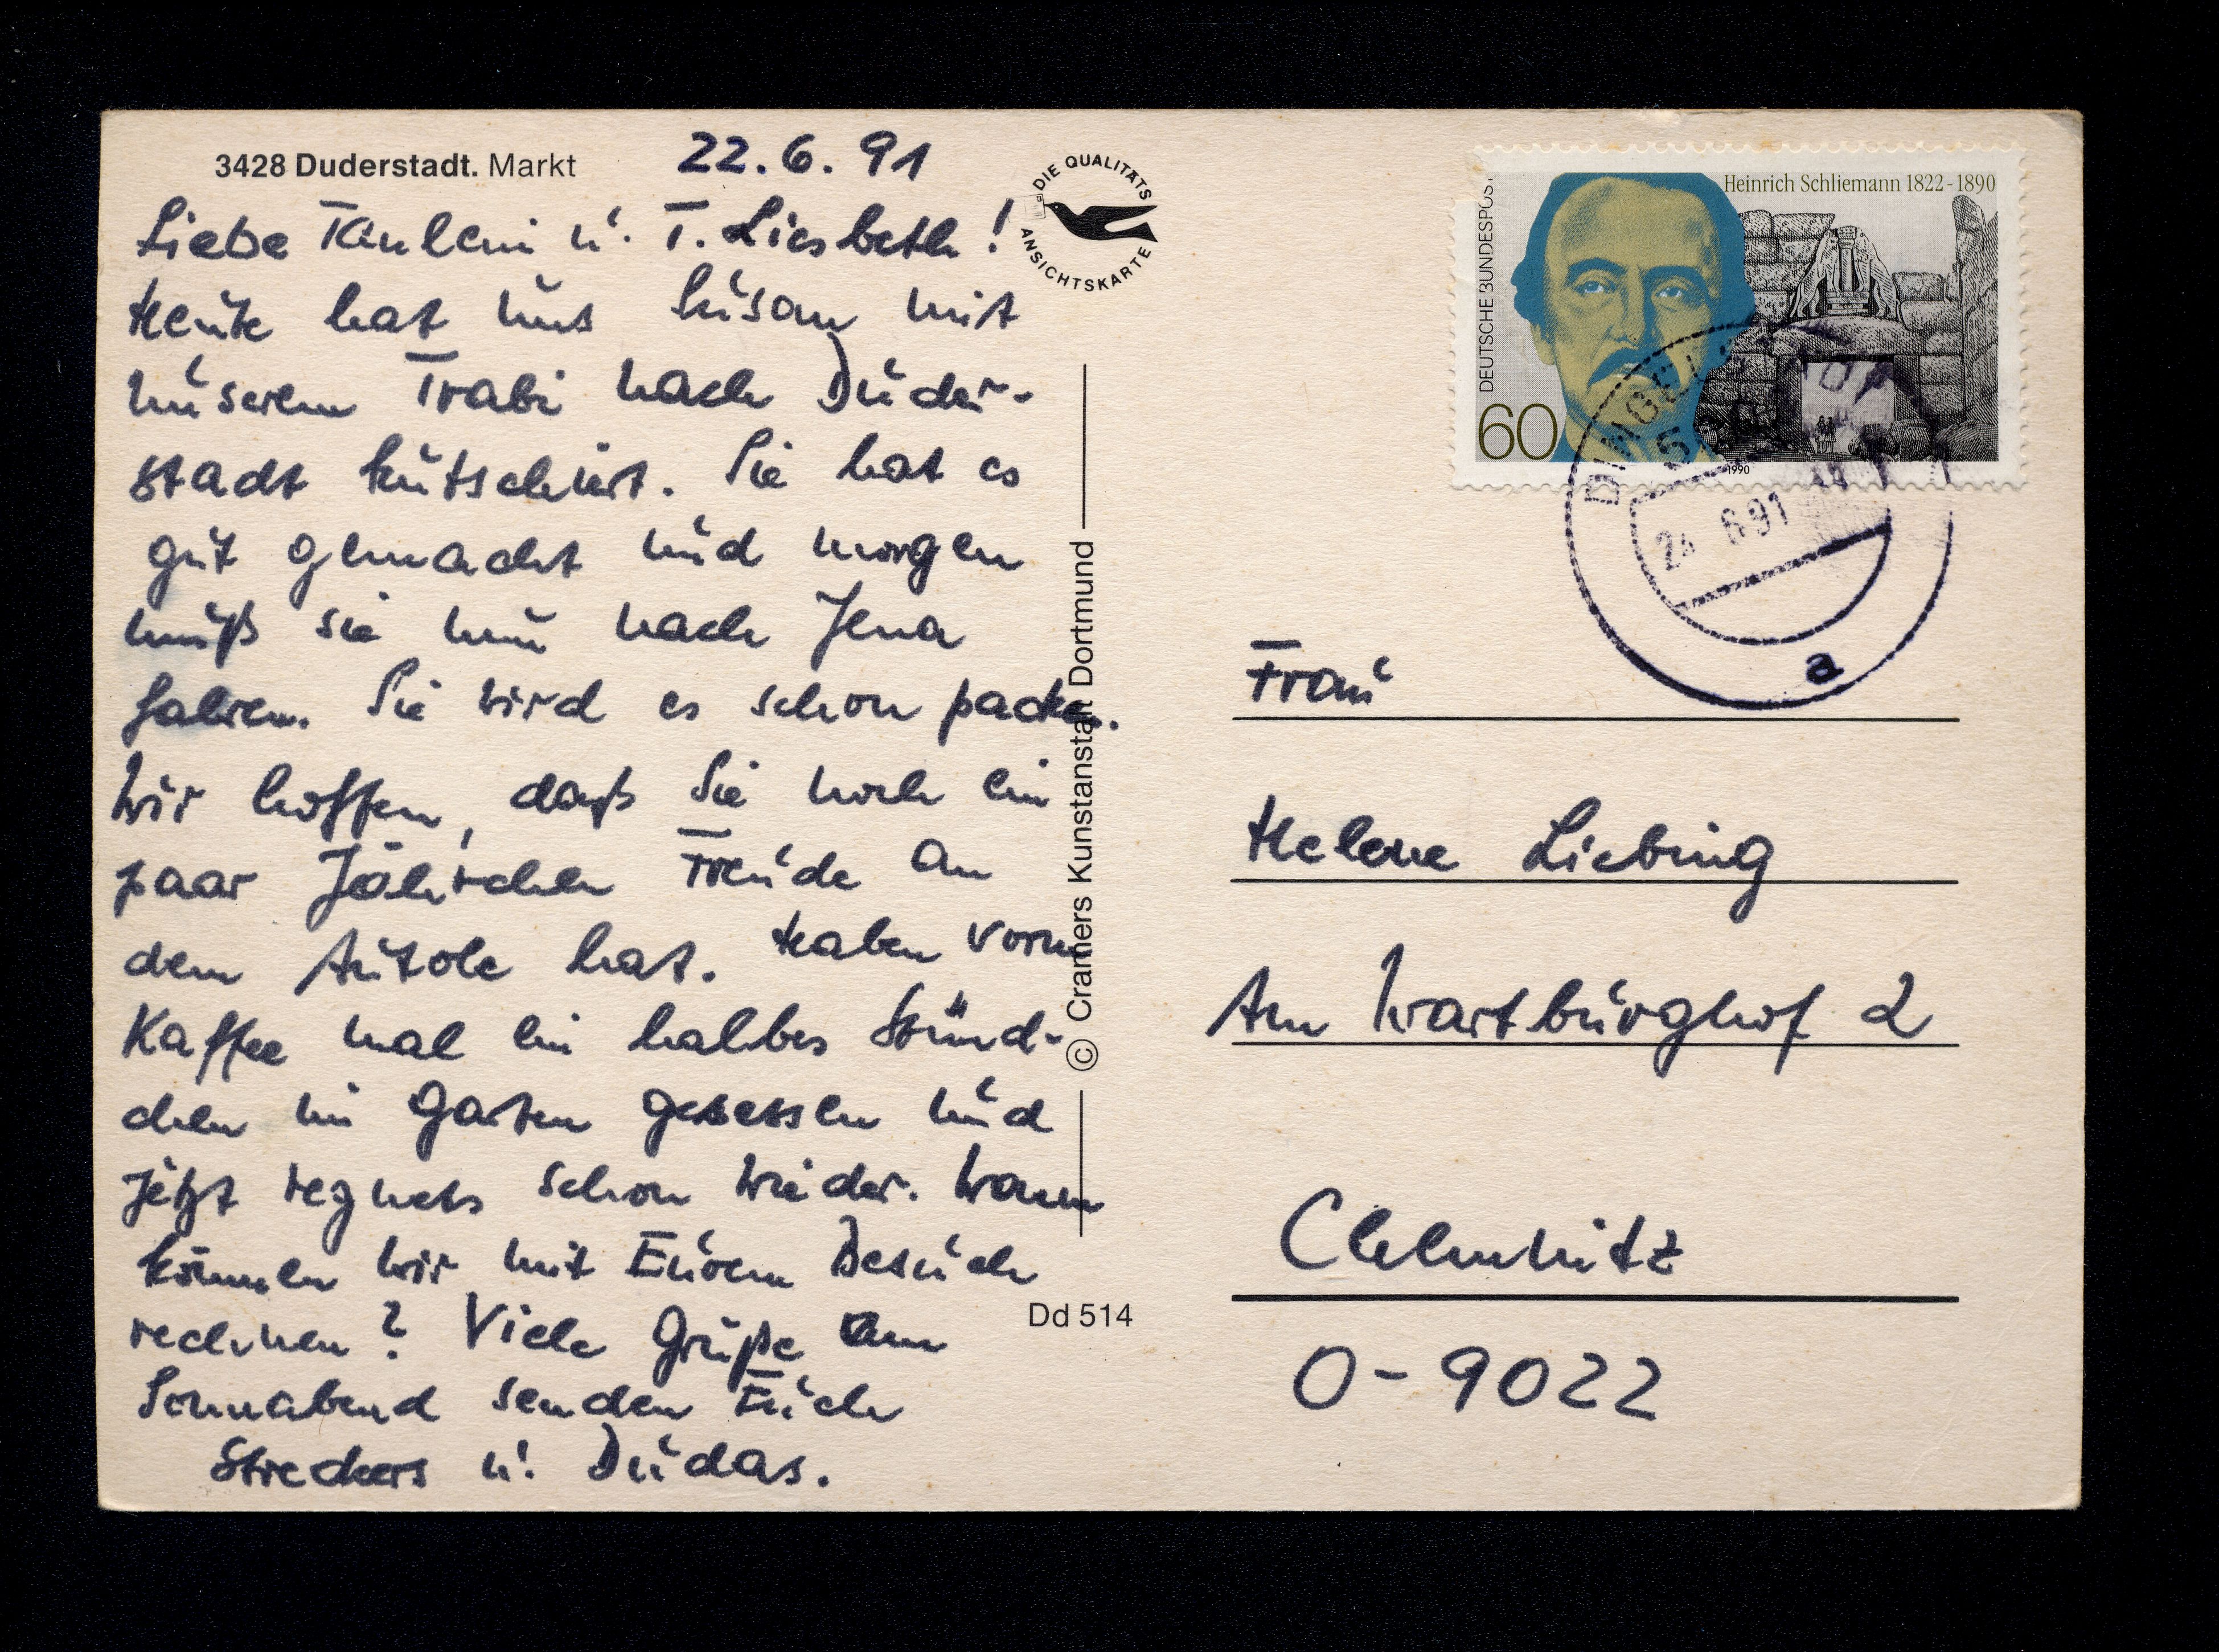 3428 Duderstadt. Markt
22.6.91
Liebe Tantleni u. T. Liesbeth!
Heute hat uns Susan mit
unserem Trabi nach Duder-
stadt kutschiert. Sie hat es
gut gemacht und morgen
muß sie nun nach Jena
fahren. Sie wird es schon packen.
Wir hoffen, daß Sie noch ein
paar Jährchen Freude an
dem Autole hat. Haben vorm
Kaffee mal ein halbes Stünd-
chen im Garten gesessen und
jetzt regnets schon wieder. Wann
können wir mit Eurem Besuch
rechnen? Viele Grüße am
Sonnabend senden Euch
Streckers u. Dudas.
DIE QUALITÄTS
ANSICHTSKARTE
© Cramers Kunstanstalt Dortmund
Dd 514
Heinrich Schliemann 1822-1890
DEUTSCHE BUNDESPOST
60
1990
6 91
a
Frau
Helene Liebing
Am Wartburghof 2
Chemnitz
O-9022